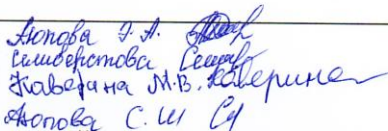 Аюпова Э. А.
Селиверстова
Каверина М.В. Каверина
Аюпова С. Ш